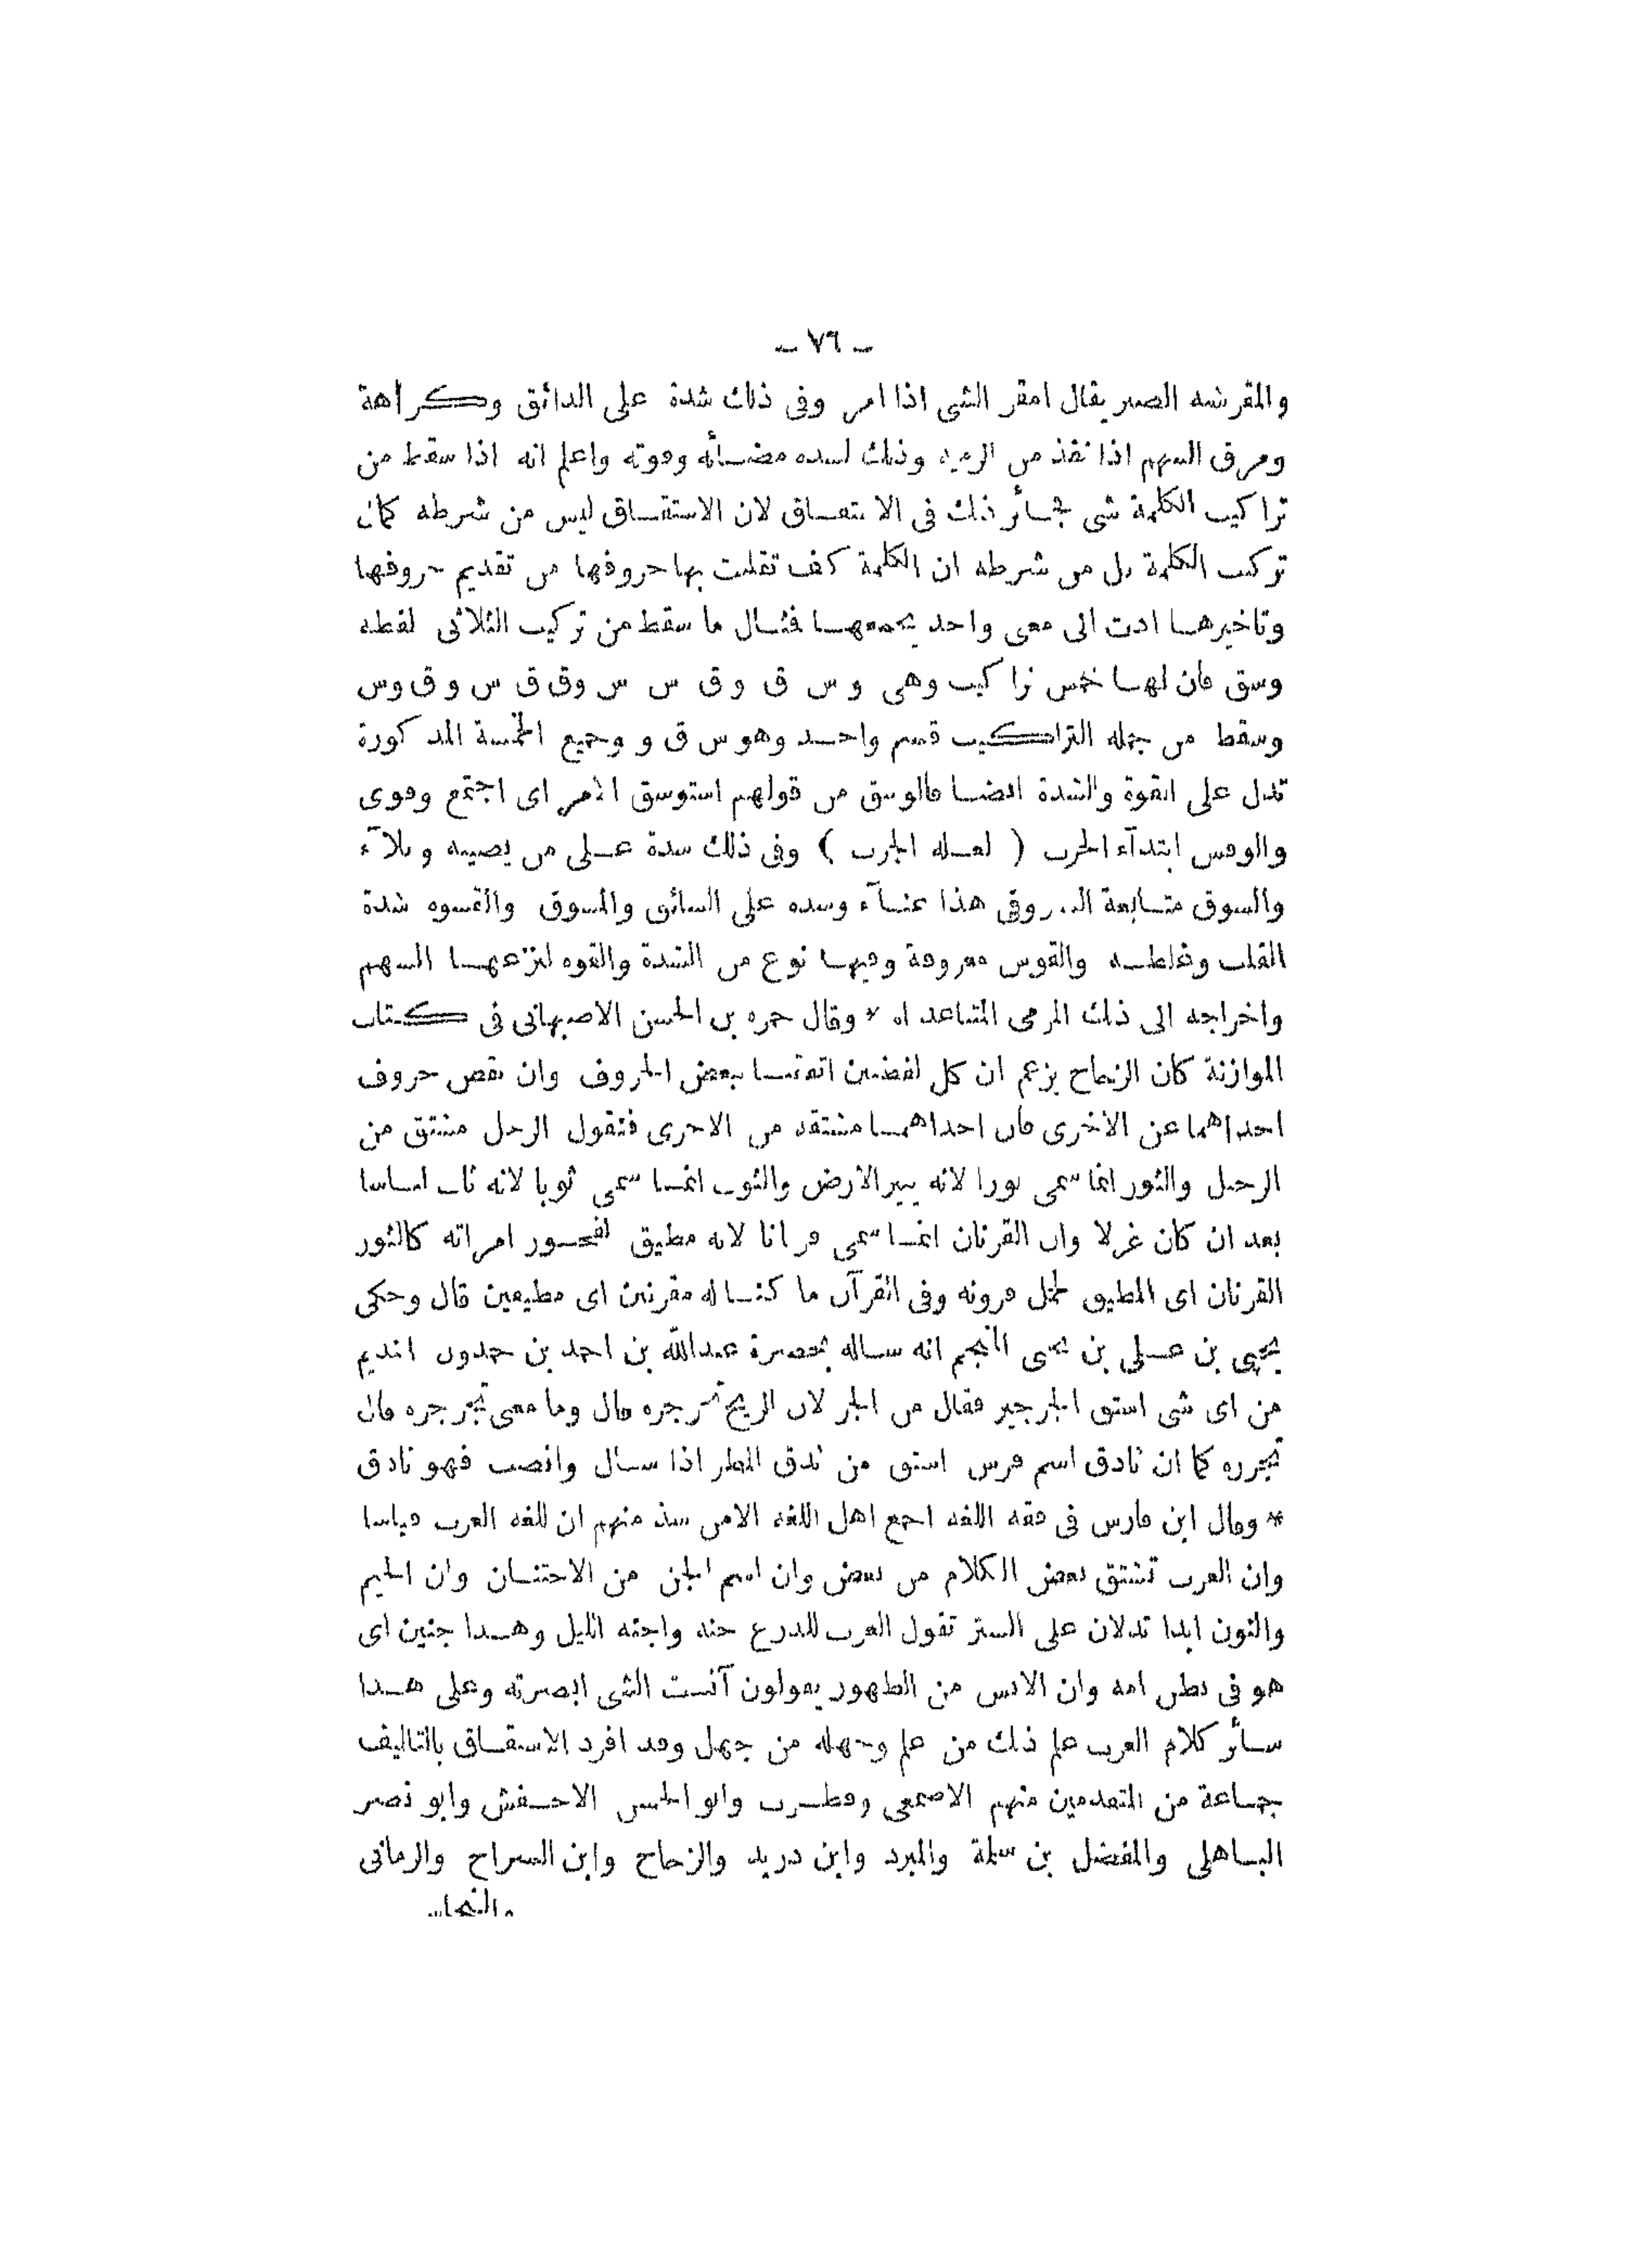 ـ ٧٦ ـ
والمقر شبه الصبر يقال امقر الشى اذا امر وفى ذلك شدة على الذائق وكراهة
ومرق السهم اذا نفذ من الرمية وذلك لشدة مضائه وقوته واعلم انه اذا سقط من
تراكيب الكلمة شى فجائز ذلك فى الاشتقاق لان الاشتقاق ليس من شرطه كمال
تركيب الكلمة بل من شرطه ان الكلمة كيف تقلبت بها حروفها من تقديم حروفها
وتاخيرها ادت الى معنى واحد يجمعهما فمثال ما سقط من تركيب الثلاثى لفظه
وسق فان لها خمس تراكيب وهى و س ق و ق س س و ق ق س و ق و س
وسقط من جملة التراكيب قسم واحد وهو س ق و وجميع الخمسة المذكورة
تدل على القوة والشدة ايضا فالوسق من قولهم استوسق الامر اى اجتمع وقوى
والوقس ابتدآء الحرب ( لعله الجرب ) وفى ذلك شدة على من يصيبه وبلآء
والسوق متابعة السير وفى هذا عنآء وشدة على السائق والمسوق والقسوه شدة
القلب وغلظه والقوس معروفة وفيها نوع من الشدة والقوه لنزعها السهم
واخراجه الى ذلك المرمى المتباعد اه * وقال حمزه بن الحسن الاصبهانى فى كتاب
الموازنة كان الزجاج يزعم ان كل لفظتين اتفقتا ببعض الحروف وان نقص حروف
احداهما عن الاخرى فان احداهما مشتقة من الاخرى فتقول الرحل مشتق من
الرحيل والثور انما سمى ثورا لانه يثير الارض والثوب انما سمى ثوبا لانه ثاب لباسا
بعد ان كان غزلا وان القرنان انما سمى قرنانا لانه مطيق لفجور امراته كالثور
القرنان اى المطيق لحمل قرونه وفى القرآن ما كنا له مقرنين اى مطيقين قال وحكى
يحيى بن على بن يحيى المنجم انه ساله بحضرة عبدالله بن احمد بن حمدون النديم
من اى شى اشتق الجرجير فقال من الجر لان الريح تجرجره قال وما معنى تجرجره قال
تجرره كما ان ثادق اسم فرس اشتق من ثدق المطر اذا سال وانصب فهو ثادق
* وقال ابن فارس فى فقه اللغه اجمع اهل اللغة الا من شذ منهم ان للغه العرب قياسا
وان العرب تشتق بعض الكلام من بعض وان اسم الجن من الاجتنان وان الجيم
والنون ابدا تدلان على الستر تقول العرب للدرع جنه واجنه الليل وهذا جنين اى
هو فى بطن امه وان الانس من الظهور يقولون آنست الشى ابصرته وعلى هذا
سائر كلام العرب علم ذلك من علم وجهله من جهل وقد افرد الاشتقاق بالتاليف
جماعة من المتقدمين منهم الاصمعى وقطرب وابو الحسن الاخفش وابو نصر
الباهلى والمفضل بن سلمة والمبرد وابن دريد والزجاج وابن السراج والرمانى
والنحاس